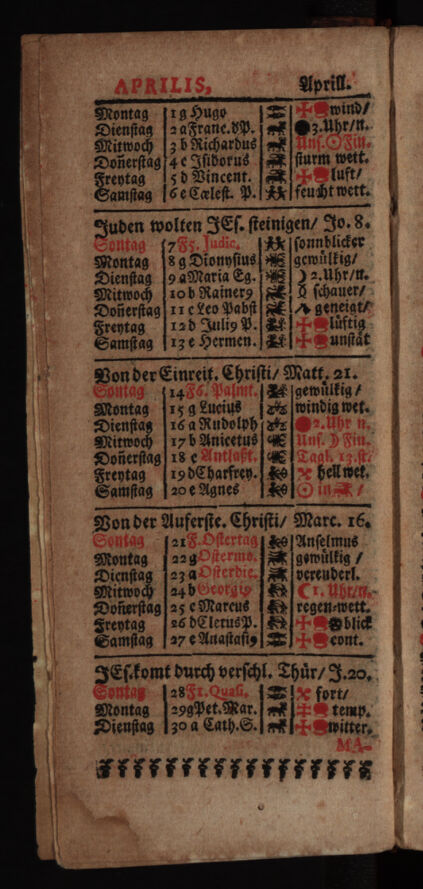 APRILIS, Aprill.
Montag 1 g Hugo wind/
Dienstag 2 a Franc. vP. 3. Uhr/n.
Mitwoch 3 b Richardus Uns. Fin.
Doñerstag 4 c Isidorus sturm wett.
Freytag 5 d Vincent. luft/
Samstag 6 e Cælest. P. feucht wett.
Juden wolten JEs. steinigen/ Jo. 8.
Sontag 7 F5. Judic. sonnblicker
Montag 8 g Dionysius gewülkig/
Dienstag 9 a Maria Eg. 2. Uhr/n.
Mitwoch 10 b Rainer9 schauer/
Doñerstag 11 c Leo Pabst geneigt/
Freytag 12 d Juli9 P. lüftig
Samstag 13 e Hermen. unstät
Von der Einreit. Christi/ Matt. 21.
Sontag 14 F6. Palmt. gewülkig/
Montag 15 g Lucius windig wet.
Dienstag 16 a Rudolph 2. Uhr n.
Mitwoch 17 b Anicetus Uns. Fin.
Doñerstag 18 c Antlaßt. Tagl. 13. st.
Freytag 19 d Charfrey. hell wet.
Samstag 20 e Agnes in /
Von der Auferste. Christi/ Marc. 16.
Sontag 21 F. Ostertag Anselmus
Montag 22 g Ostermo. gewülkig/
Dienstag 23 a Osterdie. verenderl.
Mitwoch 24 b Georgi9 1. Uhr/n.
Doñerstag 25 c Marcus regen-wett.
Freytag 26 d Cletus P. blick
Samstag 27 e Anastasi9 cont.
JEs. komt durch verschl. Thür/ J. 20.
Sontag 28 F1. Quasi. fort/
Montag 29 g Pet. Mar. temp.
Dienstag 30 a Cath. S. witter.
MA-